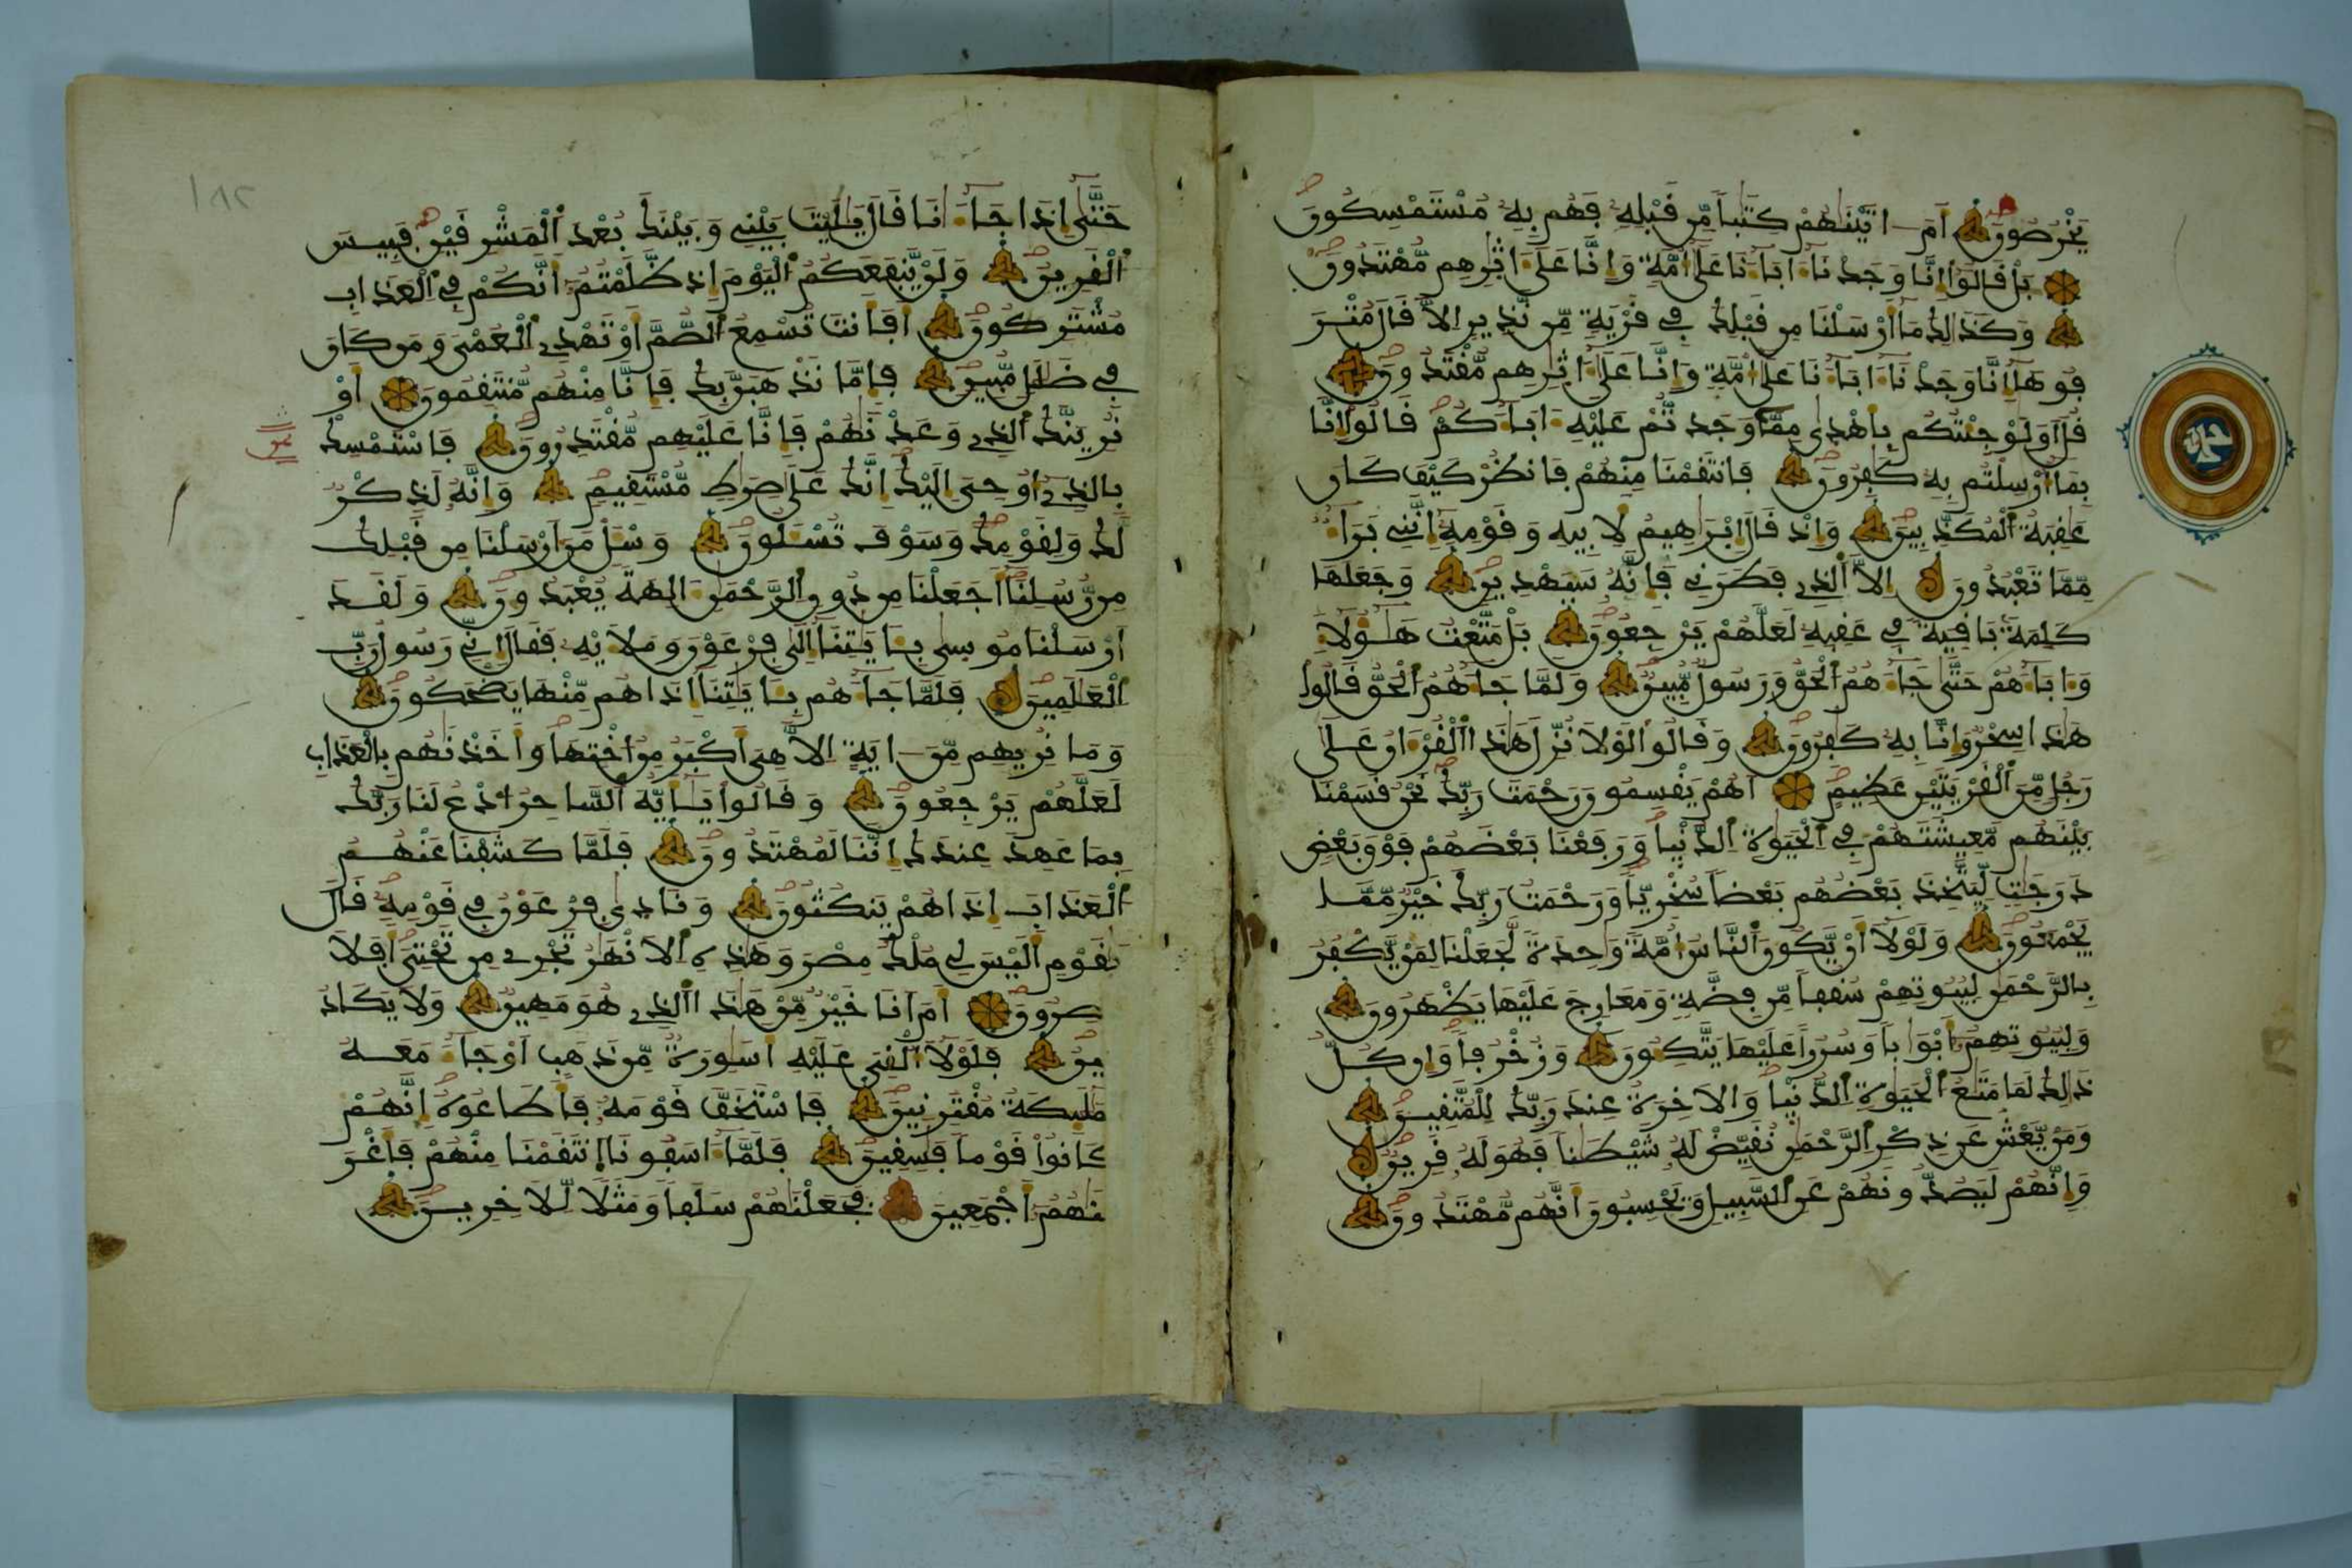 يَخْرُصُونَ أَمَ اتَيْنَٰهُمْ كِتَٰباً مِّن قَبْلِهِۦ فَهُم بِهِۦ مُسْتَمْسِكُونَ
بَلْ قَالُوٓاْ إِنَّا وَجَدْنَآ ءَابَآءَنَا عَلَىٰٓ أُمَّةٖ وَإِنَّا عَلَىٰٓ ءَاثٰرِهِم مُّهْتَدُونَ
وَكَذَٰلِكَ مَآ أَرْسَلْنَا مِن قَبْلِكَ فِي قَرْيَةٖ مِّن نَّذِيرٍ اِلَّا قَالَ مُتْرَ
فُوهَآ إِنَّا وَجَدْنَآ ءَابَآءَنَا عَلَىٰٓ أُمَّةٖ وَإِنَّا عَلَىٰٓ ءَاثٰرِهِم مُّقْتَدُونَ
قُلَ اَوَلَوْ جِئْتُكُم بِأَهْدىٰ مِمَّا وَجَدتُّمْ عَلَيْهِ ءَابَآءَكُمْ قَالُوٓاْ إِنَّا
بِمَآ أُرْسِلْتُم بِهِۦ كَٰفِرُونَ فَانتَقَمْنَا مِنْهُمْ فَانظُرْ كَيْفَ كَانَ
عَٰقِبَةُ اُ۬لْمُكَذِّبِينَ وَإِذْ قَالَ إِبْرَٰهِيمُ لِأَبِيهِ وَقَوْمِهِۦٓ إِنَّنِي بَرَآءٌ
مِّمَّا تَعْبُدُونَ إِلَّا اَ۬لذِے فَطَرَنِي فَإِنَّهُۥ سَيَهْدِينِ وَجَعَلَهَا
كَلِمَةَۢ بَاقِيَةٗ فِي عَقِبِهِۦ لَعَلَّهُمْ يَرْجِعُونَ بَلْ مَتَّعْتُ هَٰٓؤُلَآءِ
وَءَابَآءَهُمْ حَتَّىٰ جَآءَهُمُ اُ۬لْحَقُّ وَرَسُولٌ مُّبِينٌ وَلَمَّا جَآءَهُمُ اُ۬لْحَقُّ قَالُواْ
هَٰذَا سِحْرٌ وَإِنَّا بِهِۦ كَٰفِرُونَ وَقَالُواْ لَوْلَا نُزِّلَ هَٰذَا اَ۬لْقُرْءَانُ عَلَىٰ
رَجُلٍ مِّنَ اَ۬لْقَرْيَتَيْنِ عَظِيمٍ أَهُمْ يَقْسِمُونَ رَحْمَتَ رَبِّكَ نَحْنُ قَسَمْنَا
بَيْنَهُم مَّعِيشَتَهُمْ فِي اِ۬لْحَيَوٰةِ اِ۬لدُّنْيَا وَرَفَعْنَا بَعْضَهُمْ فَوْقَ بَعْضٖ
دَرَجَٰتٖ لِّيَتَّخِذَ بَعْضُهُم بَعْضاً سُخْرِيّاً وَرَحْمَتُ رَبِّكَ خَيْرٌ مِّمَّا
يَجْمَعُونَ وَلَوْلَآ أَنْ يَّكُونَ اَ۬لنَّاسُ أُمَّةً وَٰحِدَةً لَّجَعَلْنَا لِمَنْ يَّكْفُرُ
بِالرَّحْمَٰنِ لِبُيُوتِهِمْ سُقُفاً مِّن فِضَّةٖ وَمَعَارِجَ عَلَيْهَا يَظْهَرُونَ
وَلِبُيُوتِهِمُۥٓ أَبْوَٰباً وَسُرُراً عَلَيْهَا يَتَّكِـُٔونَ وَزُخْرُفاً وَإِن كُلُّ
ذَٰلِكَ لَمَا مَتَٰعُ اُ۬لْحَيَوٰةِ اِ۬لدُّنْيَا وَالَاخِرَةُ عِندَ رَبِّكَ لِلْمُتَّقِينَ
وَمَنْ يَّعْشُ عَن ذِكْرِ اِ۬لرَّحْمَٰنِ نُقَيِّضْ لَهُۥ شَيْطَٰناً فَهُوَ لَهُۥ قَرِينٌ
وَإِنَّهُمْ لَيَصُدُّونَهُمْ عَنِ اِ۬لسَّبِيلِ وَيَحْسِبُونَ أَنَّهُم مُّهْتَدُونَ
حَتَّىٰٓ إِذَا جَآءَٰنَا قَالَ يَٰلَيْتَ بَيْنِي وَبَيْنَكَ بُعْدَ اَ۬لْمَشْرِقَيْنِ فَبِيسَ
اَ۬لْقَرِينُ وَلَنْ يَّنفَعَكُمُ اُ۬لْيَوْمَ إِذ ظَّلَمْتُمُۥٓ أَنَّكُمْ فِي اِ۬لْعَذَابِ
مُشْتَرِكُونَ أَفَأَنتَ تُسْمِعُ اُ۬لصُّمَّ أَوْ تَهْدِے اِ۬لْعُمْىَ وَمَن كَانَ
فِي ضَلَٰلٖ مُّبِينٖ فَإِمَّا نَذْهَبَنَّ بِكَ فَإِنَّا مِنْهُم مُّنتَقِمُونَ أَوْ
نُرِيَنَّكَ اَ۬لذِے وَعَدْنَٰهُمْ فَإِنَّا عَلَيْهِم مُّقْتَدِرُونَ فَاسْتَمْسِكْ
بِالذِےٓ أُوحِيَ إِلَيْكَ إِنَّكَ عَلَىٰ صِرَٰطٖ مُّسْتَقِيمٖ وَإِنَّهُۥ لَذِكْرٌ
لَّكَ وَلِقَوْمِكَ وَسَوْفَ تُسْـَٔلُونَ وَسْـَٔلْ مَنَ اَرْسَلْنَا مِن قَبْلِكَ
مِن رُّسُلِنَآ أَجَعَلْنَا مِن دُونِ اِ۬لرَّحْمَٰنِ ءَالِهَةً يُعْبَدُونَ وَلَقَدَ
اَرْسَلْنَا مُوسىٰ بِـَٔايَٰتِنَآ إِلَىٰ فِرْعَوْنَ وَمَلَإِيْهِۦ فَقَالَ إِنِّي رَسُولُ رَبِّ
اِ۬لْعَٰلَمِينَ فَلَمَّا جَآءَهُم بِـَٔايَٰتِنَآ إِذَا هُم مِّنْهَا يَضْحَكُونَ
وَمَا نُرِيهِم مِّنَ ايَةٍ اِلَّا هِيَ أَكْبَرُ مِنُ اخْتِهَا وَأَخَذْنَٰهُم بِالْعَذَابِ
لَعَلَّهُمْ يَرْجِعُونَ وَقَالُواْ يَٰٓأَيُّهَ اَ۬لسَّاحِرُ اُ۟دْعُ لَنَا رَبَّكَ
بِمَا عَهِدَ عِندَكَ إِنَّنَا لَمُهْتَدُونَ فَلَمَّا كَشَفْنَا عَنْهُمُ
اُ۬لْعَذَابَ إِذَا هُمْ يَنكُثُونَ وَنَادىٰ فِرْعَوْنُ فِي قَوْمِهِۦ قَالَ
يَٰقَوْمِ أَلَيْسَ لِي مُلْكُ مِصْرَ وَهَٰذِهِ اِ۬لَانْهَٰرُ تَجْرِے مِن تَحْتِيَ أَفَلَا
تُبْصِرُونَ أَمَ اَنَا خَيْرٌ مِّنْ هَٰذَا اَ۬لذِے هُوَ مَهِينٌ وَلَا يَكَادُ
يُبِينُ فَلَوْلَآ أُلْقِيَ عَلَيْهِ أَسَٰوِرَةٌ مِّن ذَهَبٍ اَوْ جَآءَ مَعَهُ
اُ۬لْمَلَٰٓئِكَةُ مُقْتَرِنِينَ فَاسْتَخَفَّ قَوْمَهُۥ فَأَطَاعُوهُ إِنَّهُمْ
كَانُواْ قَوْماً فَٰسِقِينَ فَلَمَّآ ءَاسَفُونَا اَ۪نتَقَمْنَا مِنْهُمْ فَأَغْرَ
قْنَٰهُمُۥٓ أَجْمَعِينَ فَجَعَلْنَٰهُمْ سَلَفاً وَمَثَلاً لِّلَاخِرِينَ
١٨٢